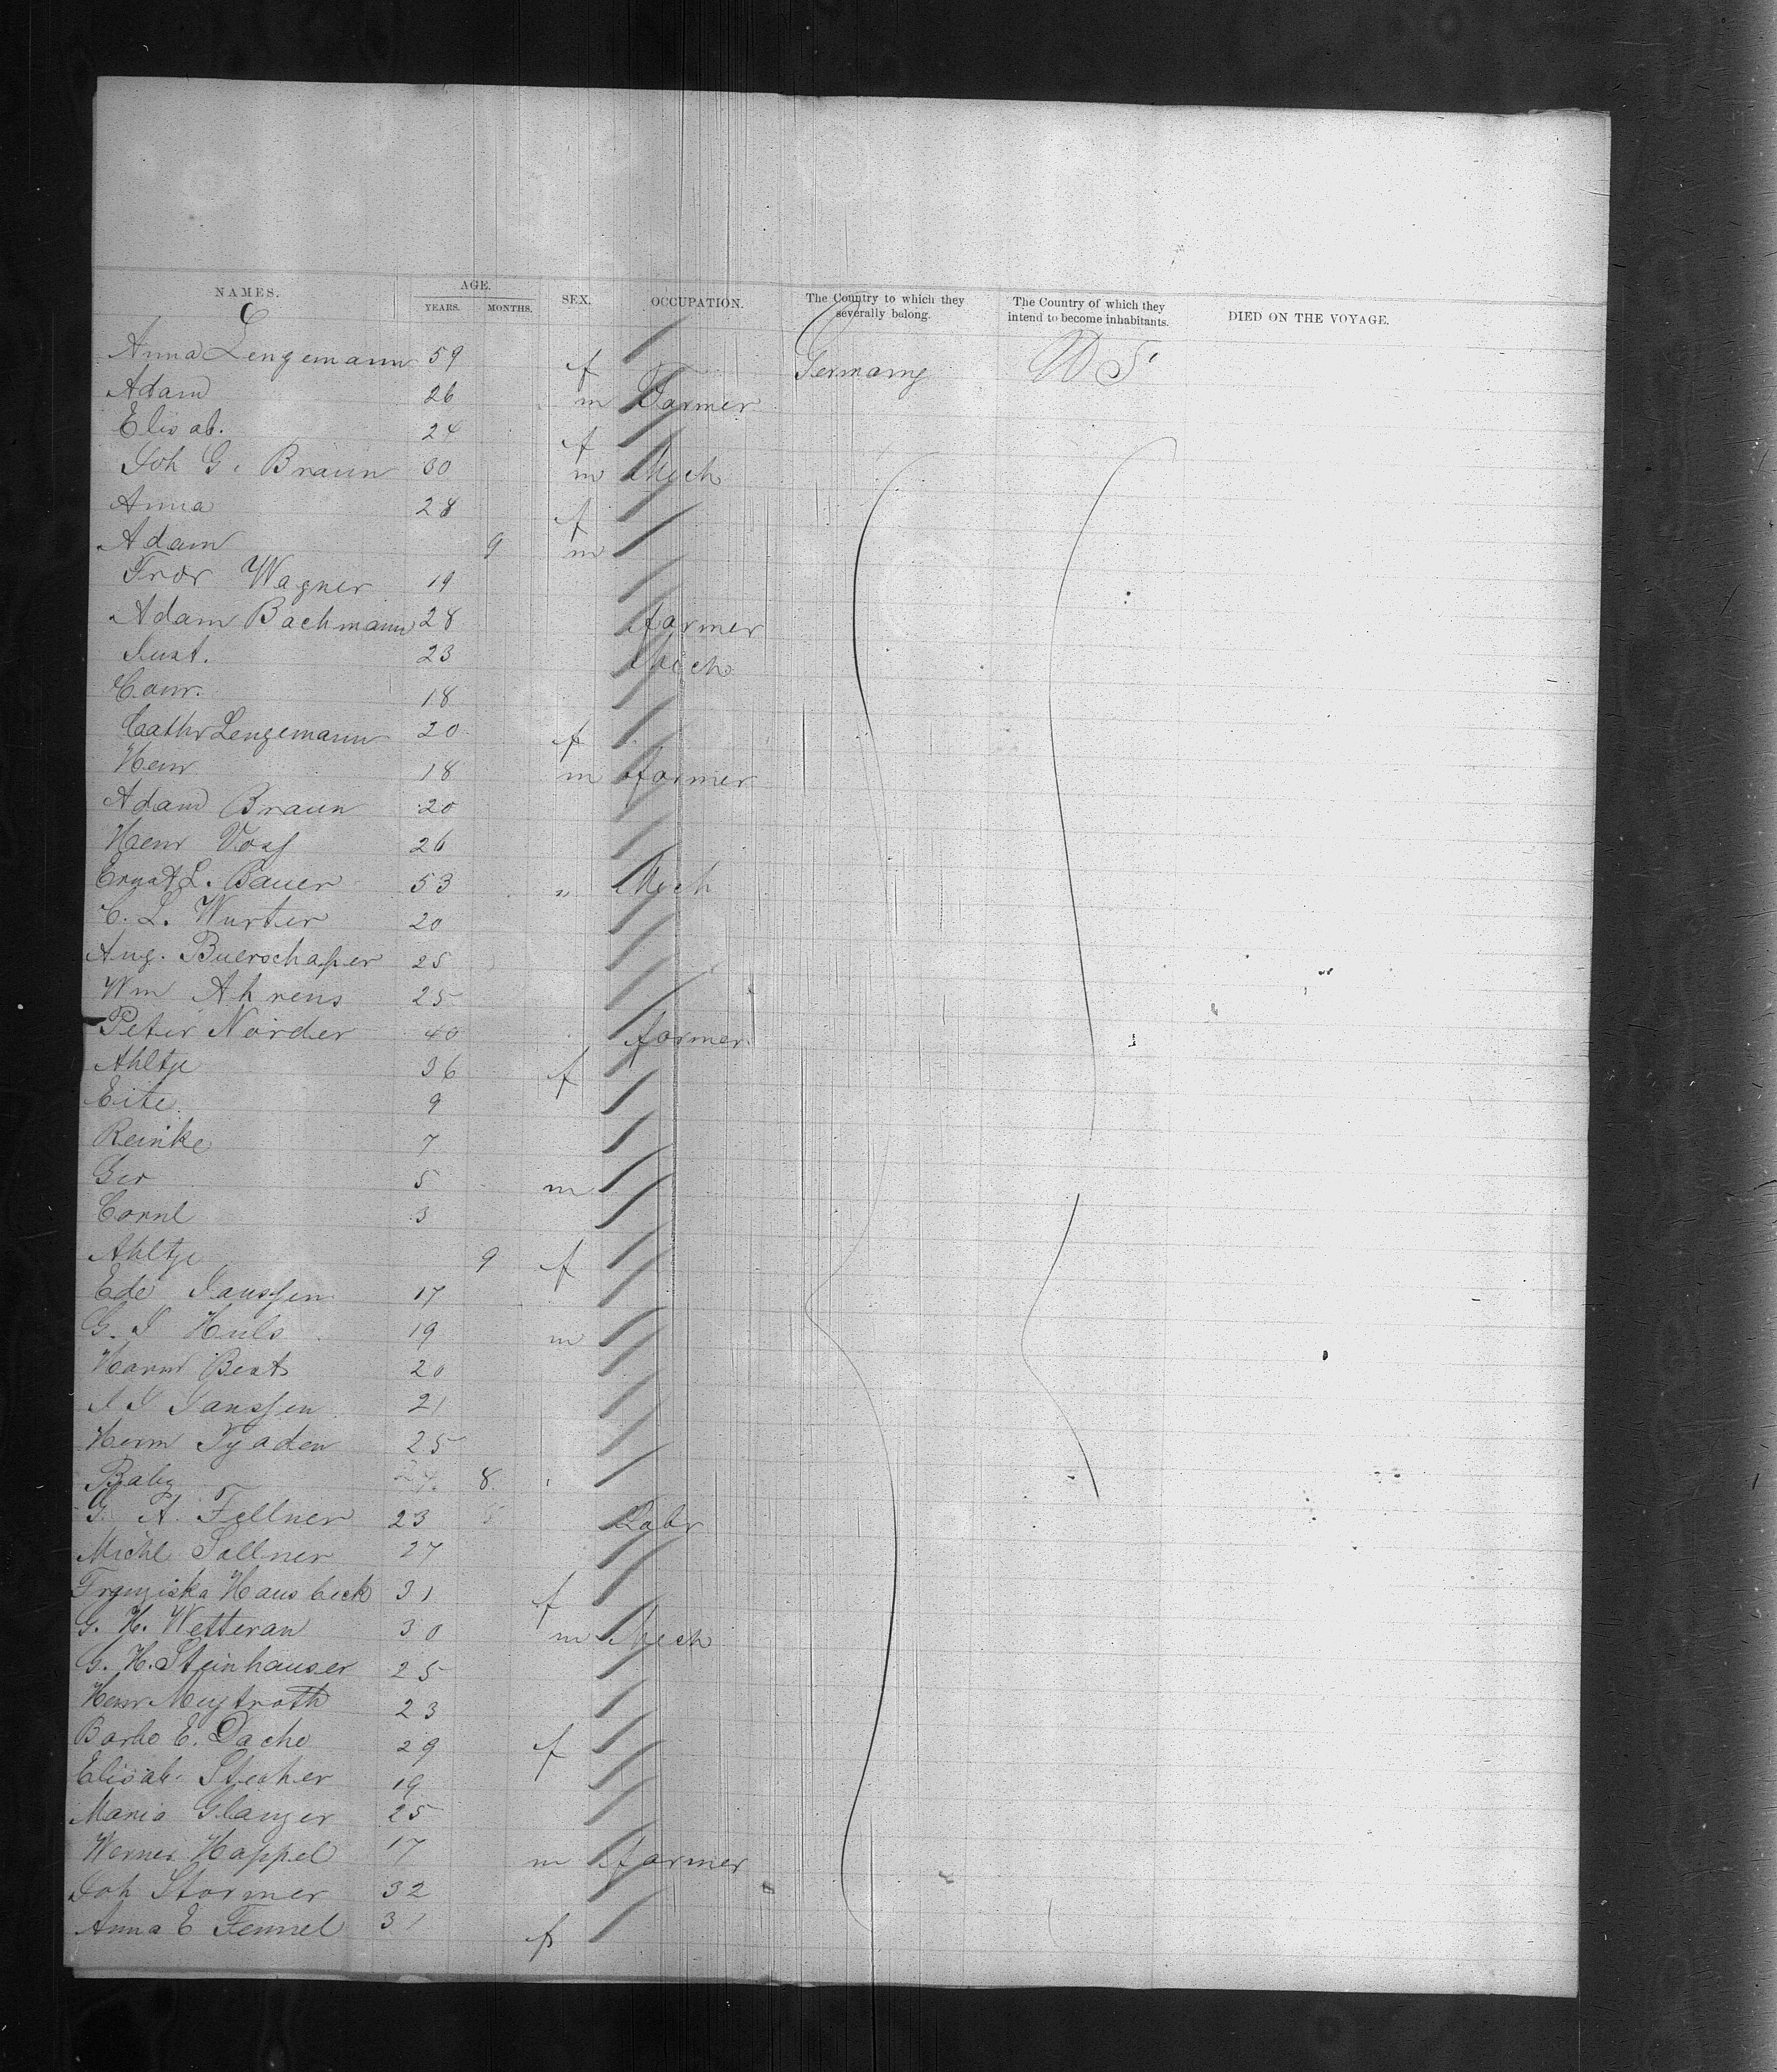 NAMES. AGE. SEX. OCCUPATION. The Country to which they severally belong. The Country of which they intend to become inhabitants. DIED ON THE VOYAGE.
YEARS. MONTHS.
Anna Lengemann 59 f Germany U S
Adam 26 m Farmer
Elisab. 24 f
Joh G. Braun 30 m Mech
Anna 28 f
Adam 9 m
Wagner 19
Adam Bachmann 28 farmer
Just. 23 Mech
Conr. 18
Cathr Lengemann 20 f
Henr 18 m farmer
Adam Braun 20
Henr Voss 26
Ernst L. Bauer 53 " Mech
C. L. Wurter 20
Aug. Buerschaper 25
Wm Ahrens 25
Peter Norder 40 farmer
Ahltje 36 f
Eite 9
Reinke 7
Ger 5 m
Cornl 3
Ahltje 9 f
Ede Janssen 17
G. J Huls 19 m
Harm Bent 20
J J Janssen 21
Herm Tjaden 25
Baby 8
G. A. Fellner 23 Labr
Michl Sollner 27
Franziska Hausbeck 31 f
G. H. Wetteran 30 m Mech
G. H. Steinhauser 25
Henr 23
Barb E. Dache 29 f
Elisab. Stecher 19
Maria Glanzer 25
Werner Happel 17 m farmer
Joh Stormer 32
Anna E Fennel 31 f